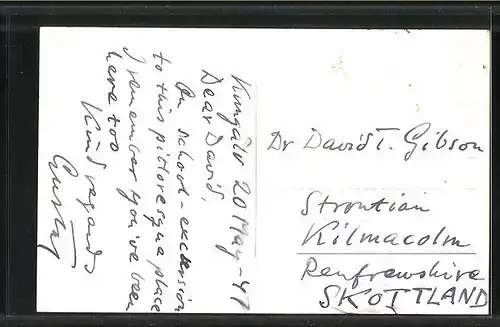 Kungälv 20 May - 47
Dear David,
On school-excursion
to this pittoresque place
I remember you've been
here too
Kind regards
Gustaf
Dr David T. Gibson
Strontian
Kilmacolm
Renfrewshire
SKOTTLAND